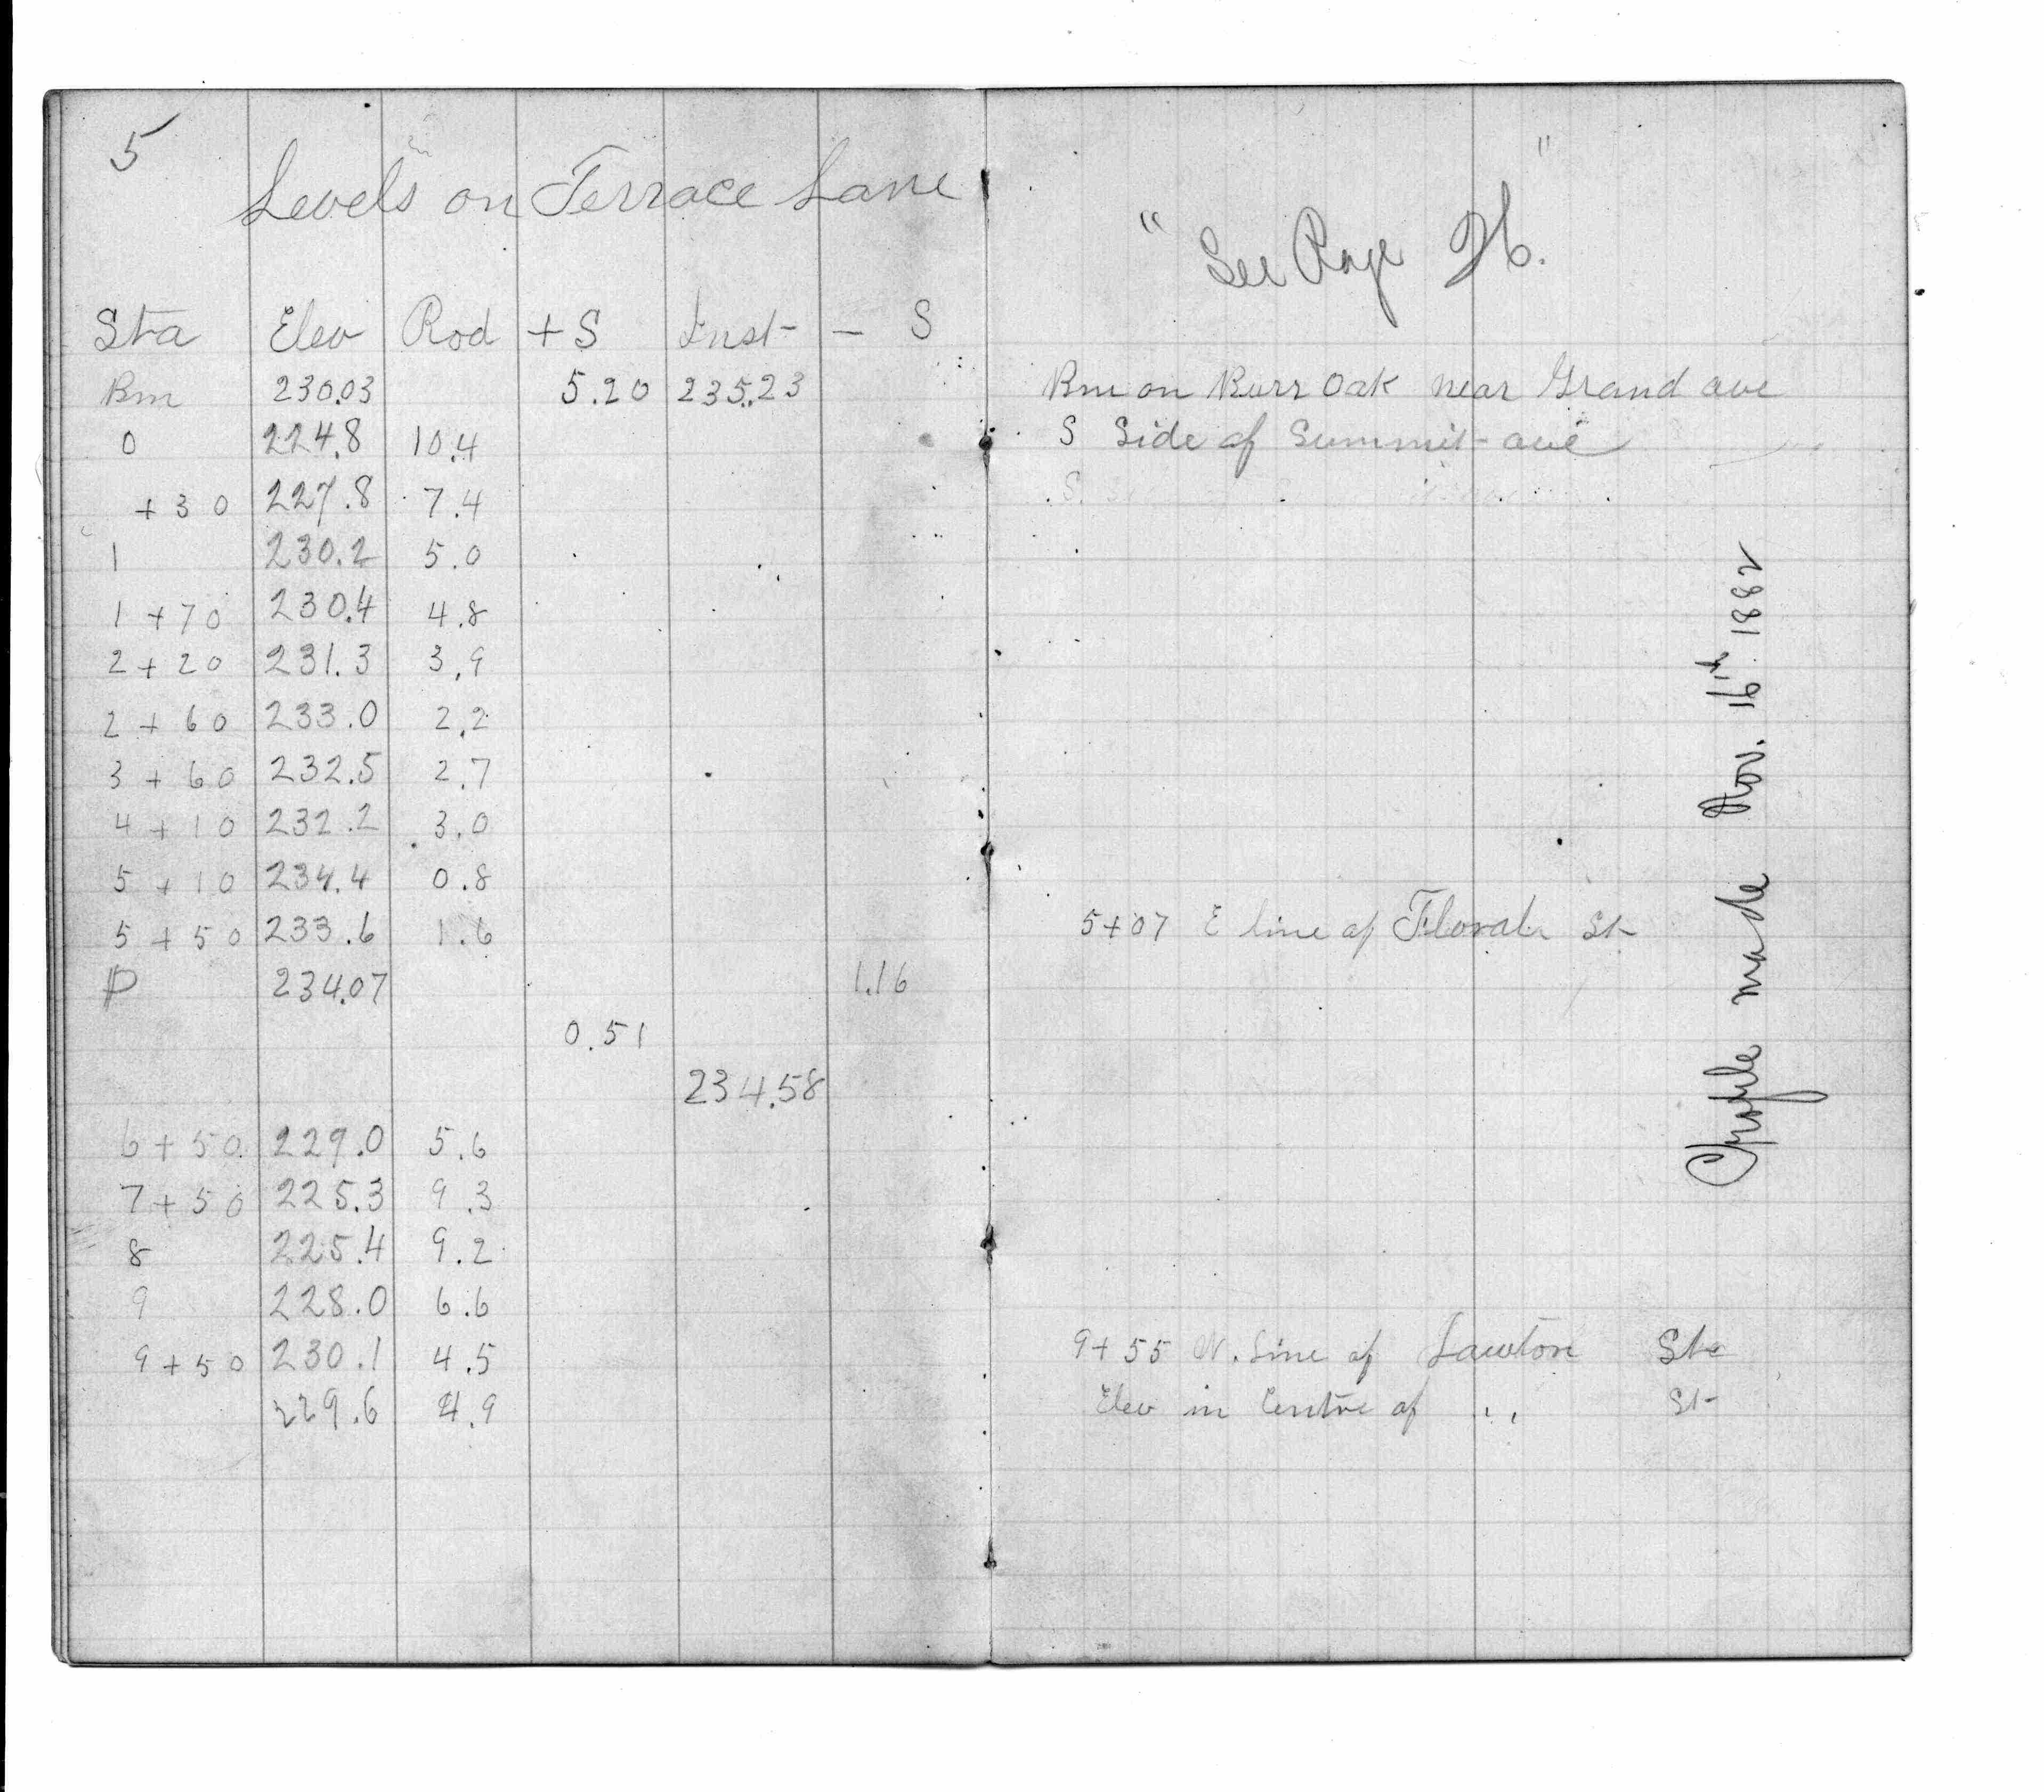 5
Levels on Terrace Lane
Sta Elev Rod + S Inst - S
Bm 230.03 5.20 235.23
0 224.8 10.4
+ 30 227.8 7.4
1 230.2 5.0
1 + 70 230.4 4.8
2 + 20 231.3 3.9
2 + 60 233.0 2.2
3 + 60 232.5 2.7
4 + 10 232.2 3.0
5 + 10 234.4 0.8
5 + 50 233.6 1.6
P 234.07 1.16
0.51
234.58
6 + 50 229.0 5.6
7 + 50 225.3 9.3
8 225.4 9.2
9 228.0 6.6
9 + 50 230.1 4.5
229.6 4.9
"See Page "
Bm on Burr Oak near Grand ave
S Side of Summit ave
5+07 E line of Floral St
9+55 N. Line of Lawton St
Elev in Centre of " St
Profile made Nov. 16th 1882